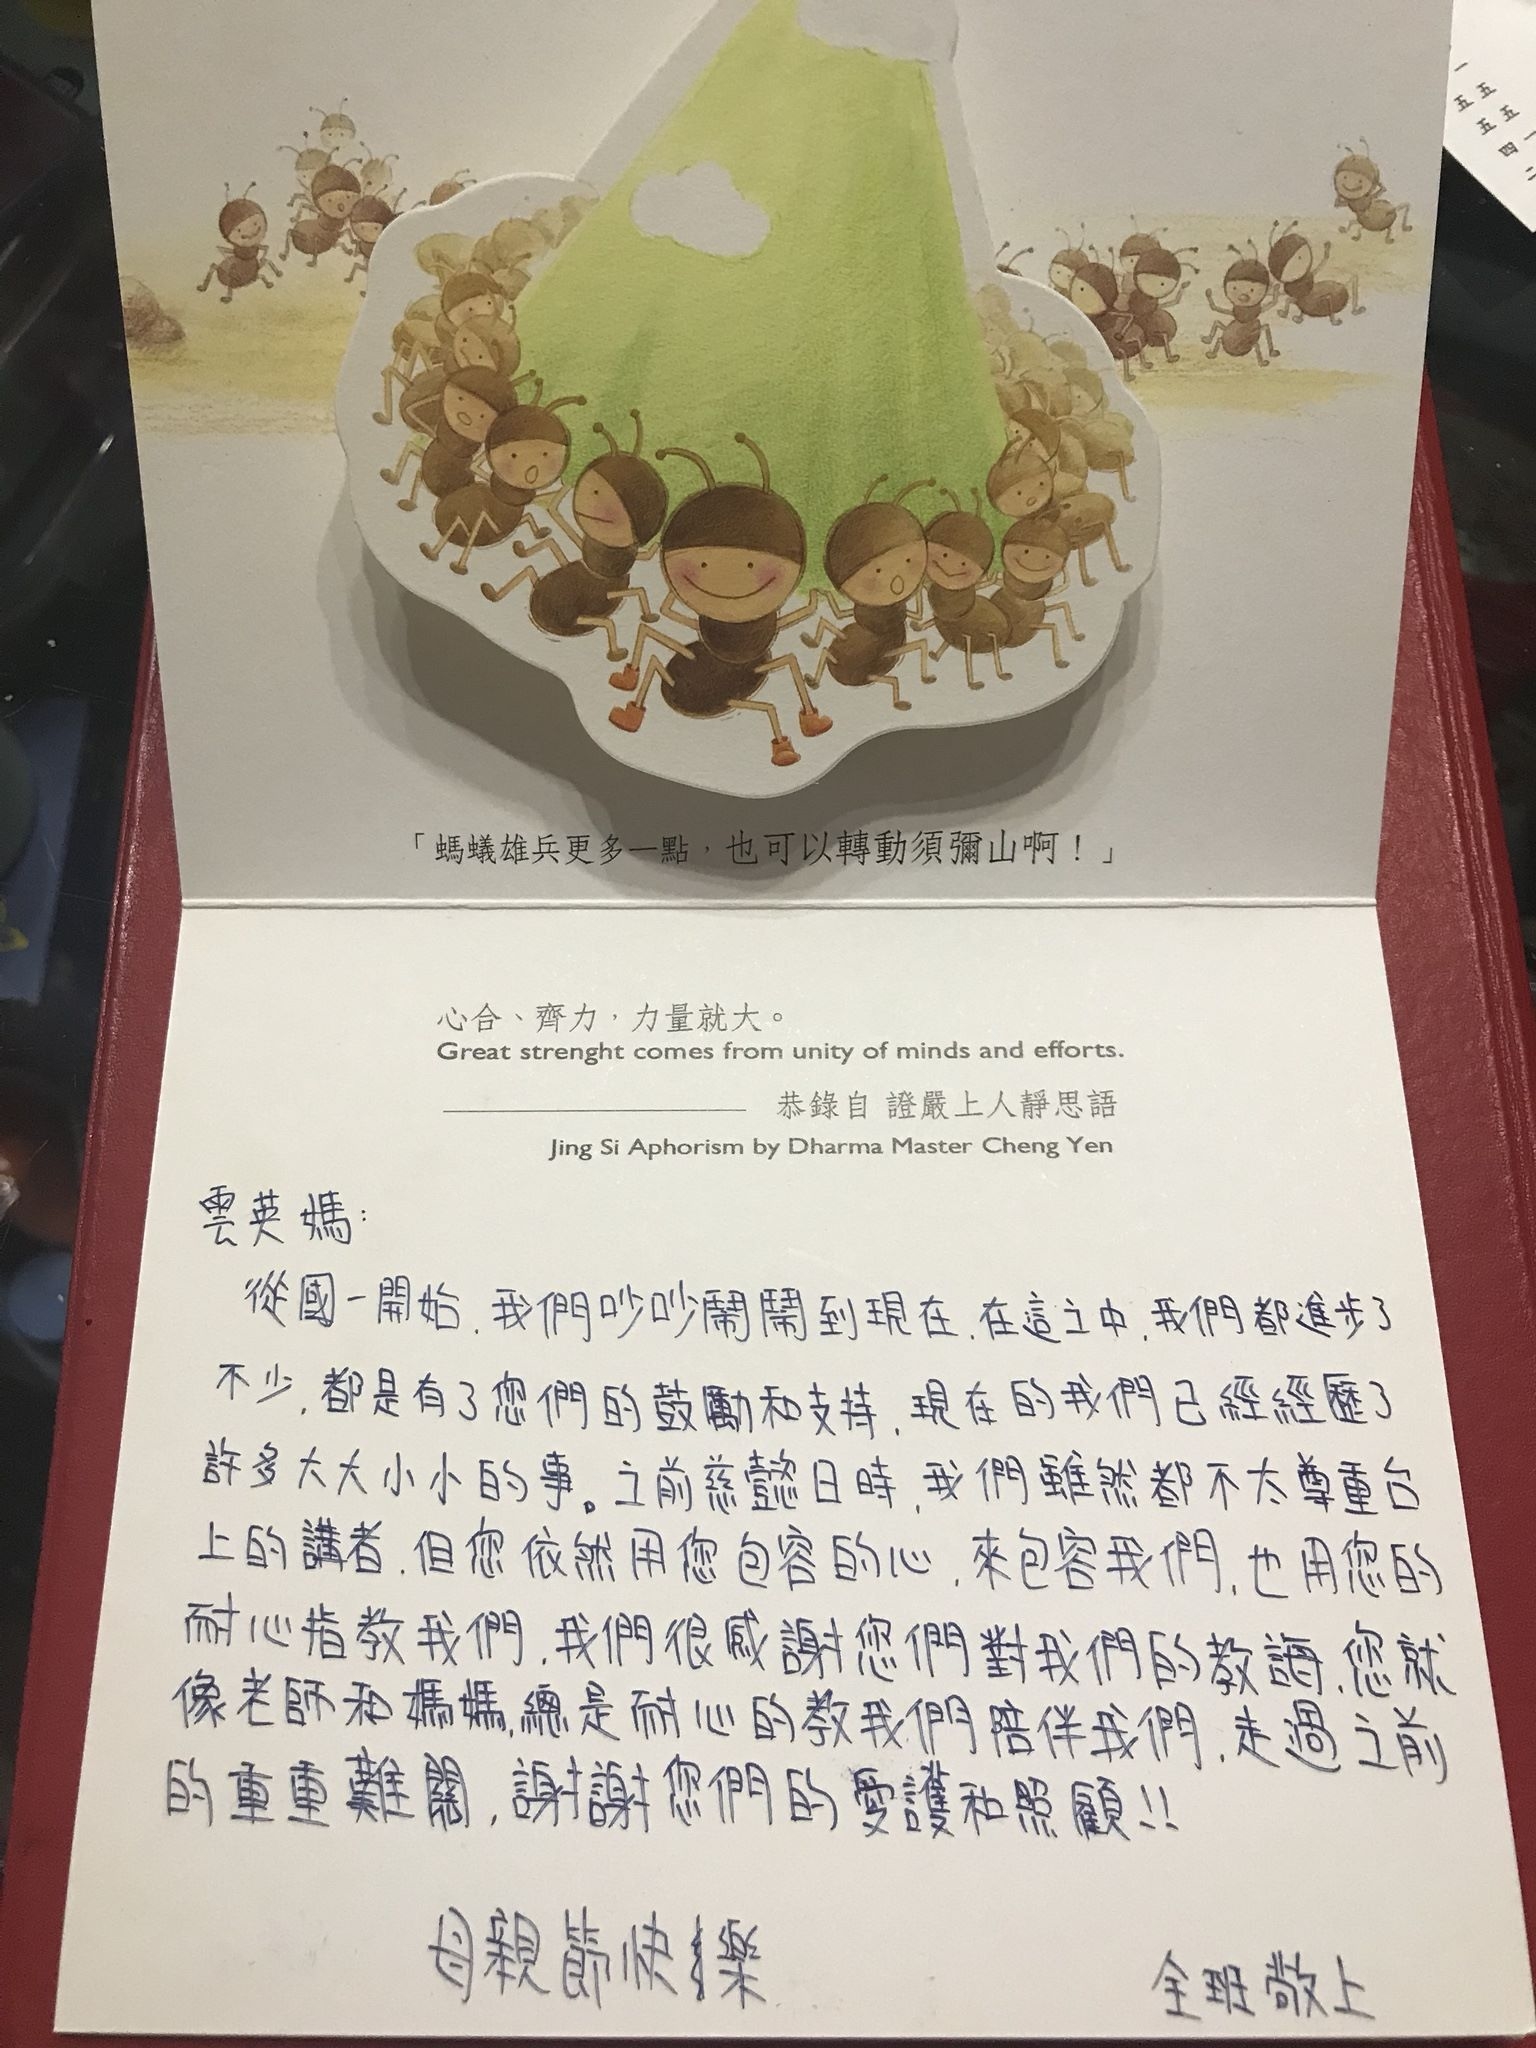 「螞蟻雄兵更多一點，也可以轉動須彌山啊！」
心合、齊力，力量就大。
Great strenght comes from unity of minds and efforts.
恭錄自 證嚴上人靜思語
Jing Si Aphorism by Dharma Master Cheng Yen
雲英媽：
從國一開始，我們吵吵鬧鬧到現在，在這之中，我們都進步了
不少，都是有了您們的鼓勵和支持，現在的我們已經經歷了
許多大大小小的事。之前慈懿日時，我們雖然都不太尊重台
上的講者，但您依然用您包容的心，來包容我們，也用您的
耐心指教我們，我們很感謝您們對我們的教誨，您就
像老師和媽媽，總是耐心的教我們陪伴我們，走過之前
的重重難關，謝謝您們的愛護和照顧!!
母親節快樂
全班敬上
一
五五
五五
四一
二